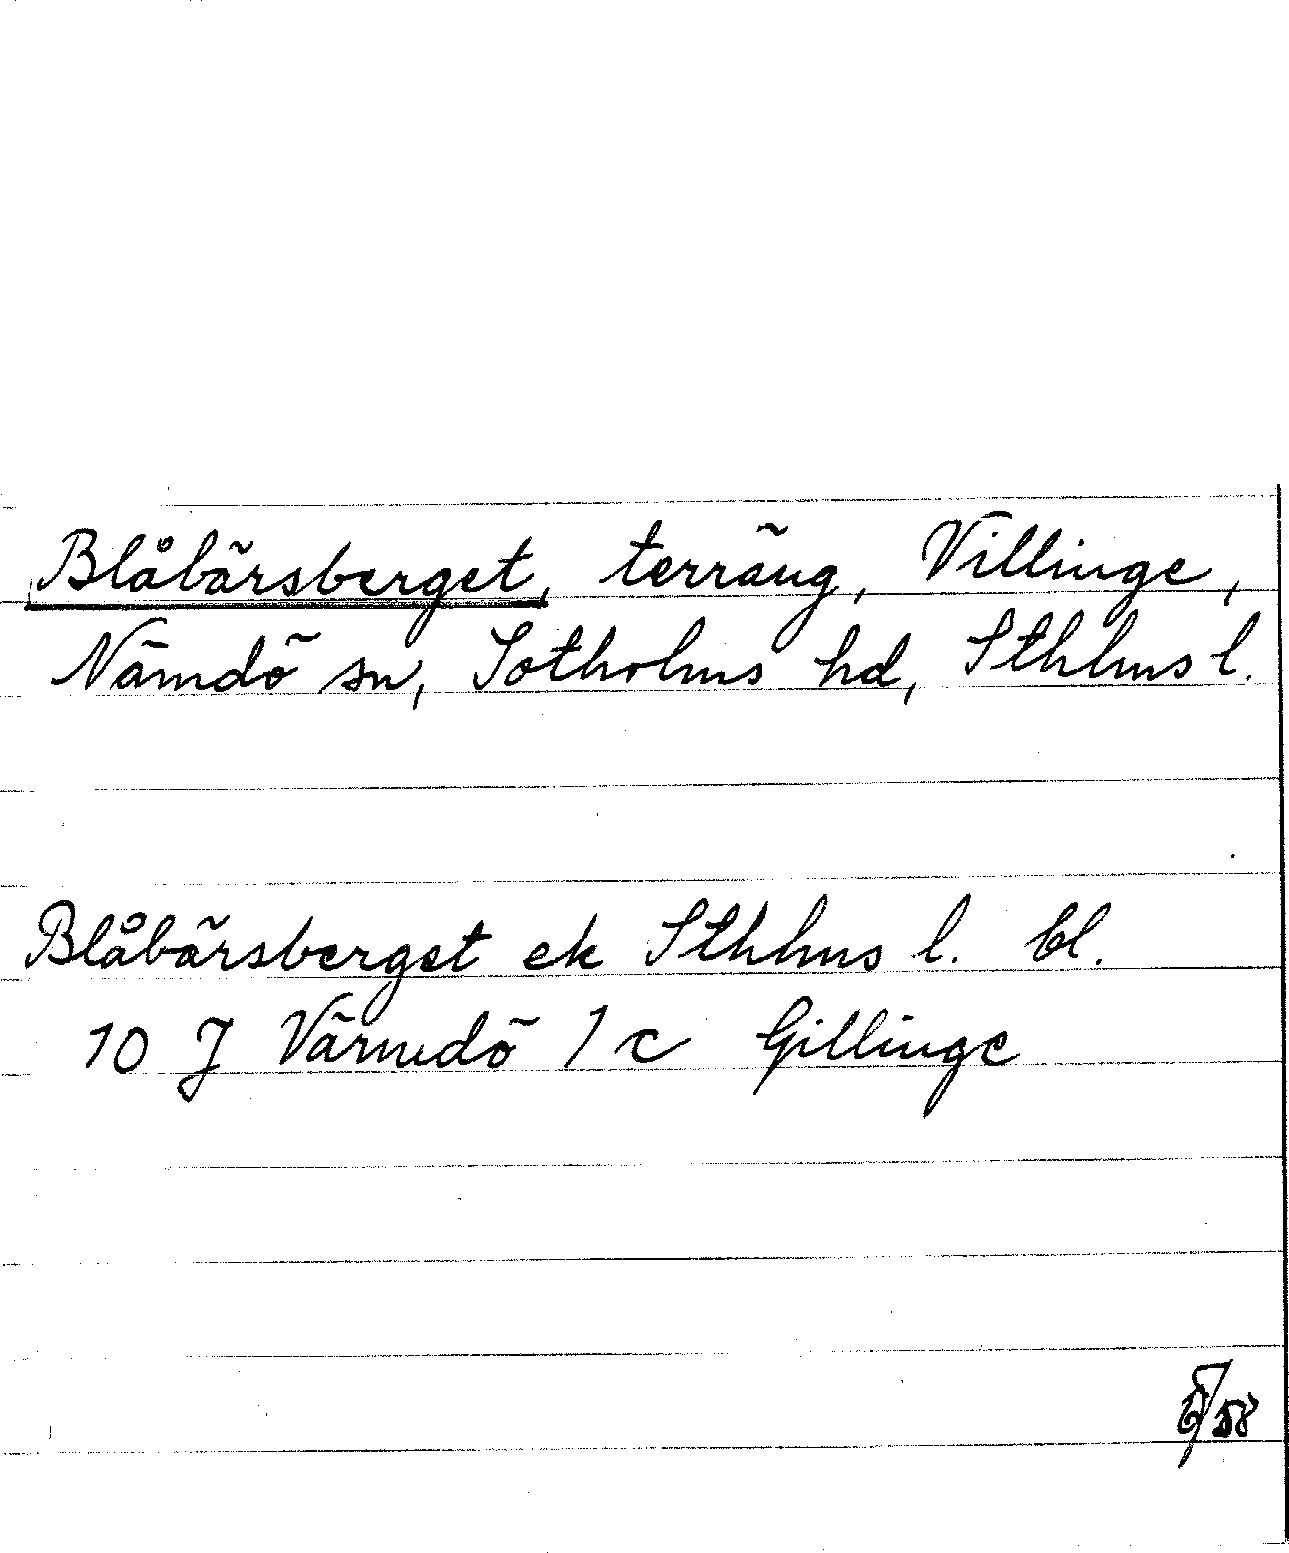 Blåbärsberget, terräng, Villinge,
Nämdö sn, Sotholms hd, Sthlms l.
Blåbärsberget ek Sthlms l. bl.
10 J Värmdö 1 c Gillinge